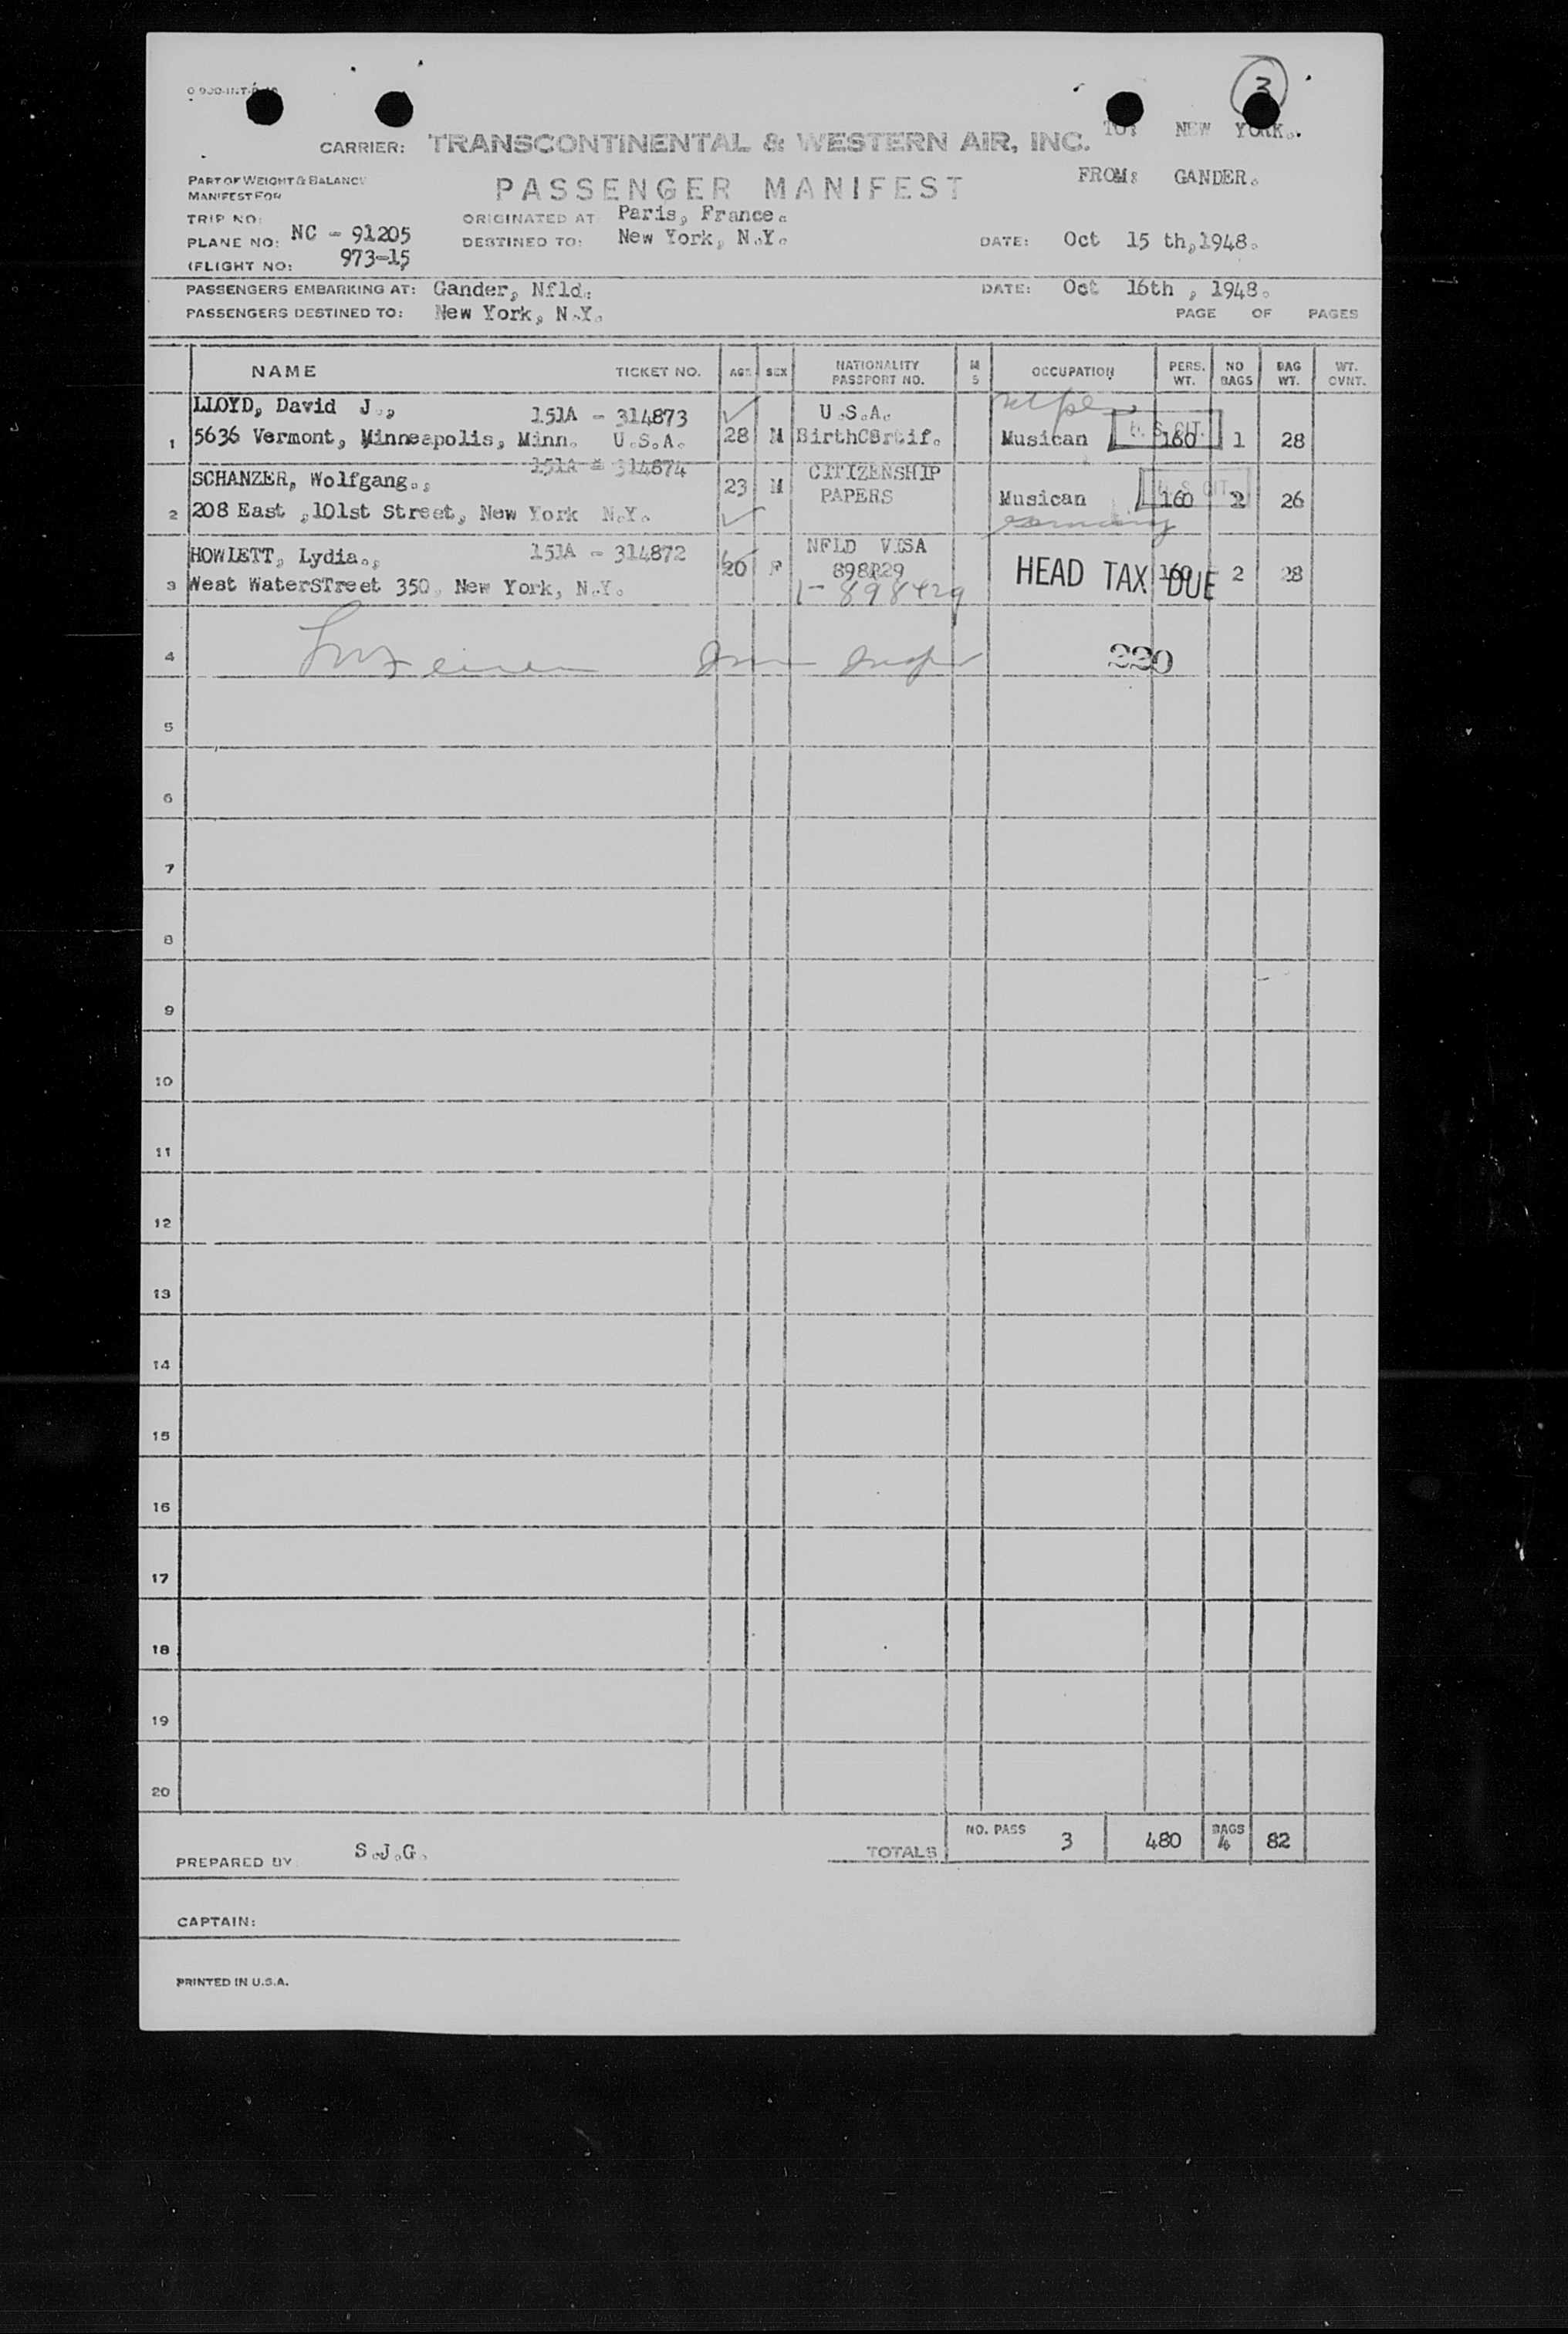 3
TO: NEW YORK.
CARRIER: TRANSCONTINENTAL & WESTERN AIR, INC.
FROM: GANDER.
PART OF WEIGHT & BALANCE
MANIFEST FOR
PASSENGER MANIFEST
TRIP NO:
ORIGINATED AT: Paris, France.
PLANE NO: NC - 91205
DESTINED TO: New York, N.Y.
DATE: Oct 15 th,1948.
(FLIGHT NO: 973-15
PASSENGERS EMBARKING AT: Gander, Nfld.
DATE: Oct 16th , 1948.
PASSENGERS DESTINED TO: New York, N.Y.
PAGE OF PAGES
NAME TICKET NO. AGE SEX NATIONALITY PASSPORT NO. M S OCCUPATION PERS. WT. NO BAGS BAG WT. WT. OVNT.
LLOYD, David J., 151A - 314873 U.S.A.
1 5636 Vermont, Minneapolis, Minn. U.S.A. 28 M BirthCertif. Musican U.S. CIT. 160 1 28
SCHANZER, Wolfgang., 151A - 314874 23 M CITIZENSHIP
PAPERS Musican U.S. CIT. 160 26
2 208 East ,101st Street, New York N.Y.
Germany
HOWLETT, Lydia., 151A - 314872 NFLD VISA
20 F 898R29 HEAD TAX DUE 160 2 28
3 West WaterSTreet 350, New York, N.Y. 898429
4 220
5
6
7
8
9
10
11
12
13
14
15
16
17
18
19
20
TOTALS NO. PASS 3 480 BAGS 4 82
PREPARED BY S.J.G.
CAPTAIN:
PRINTED IN U.S.A.